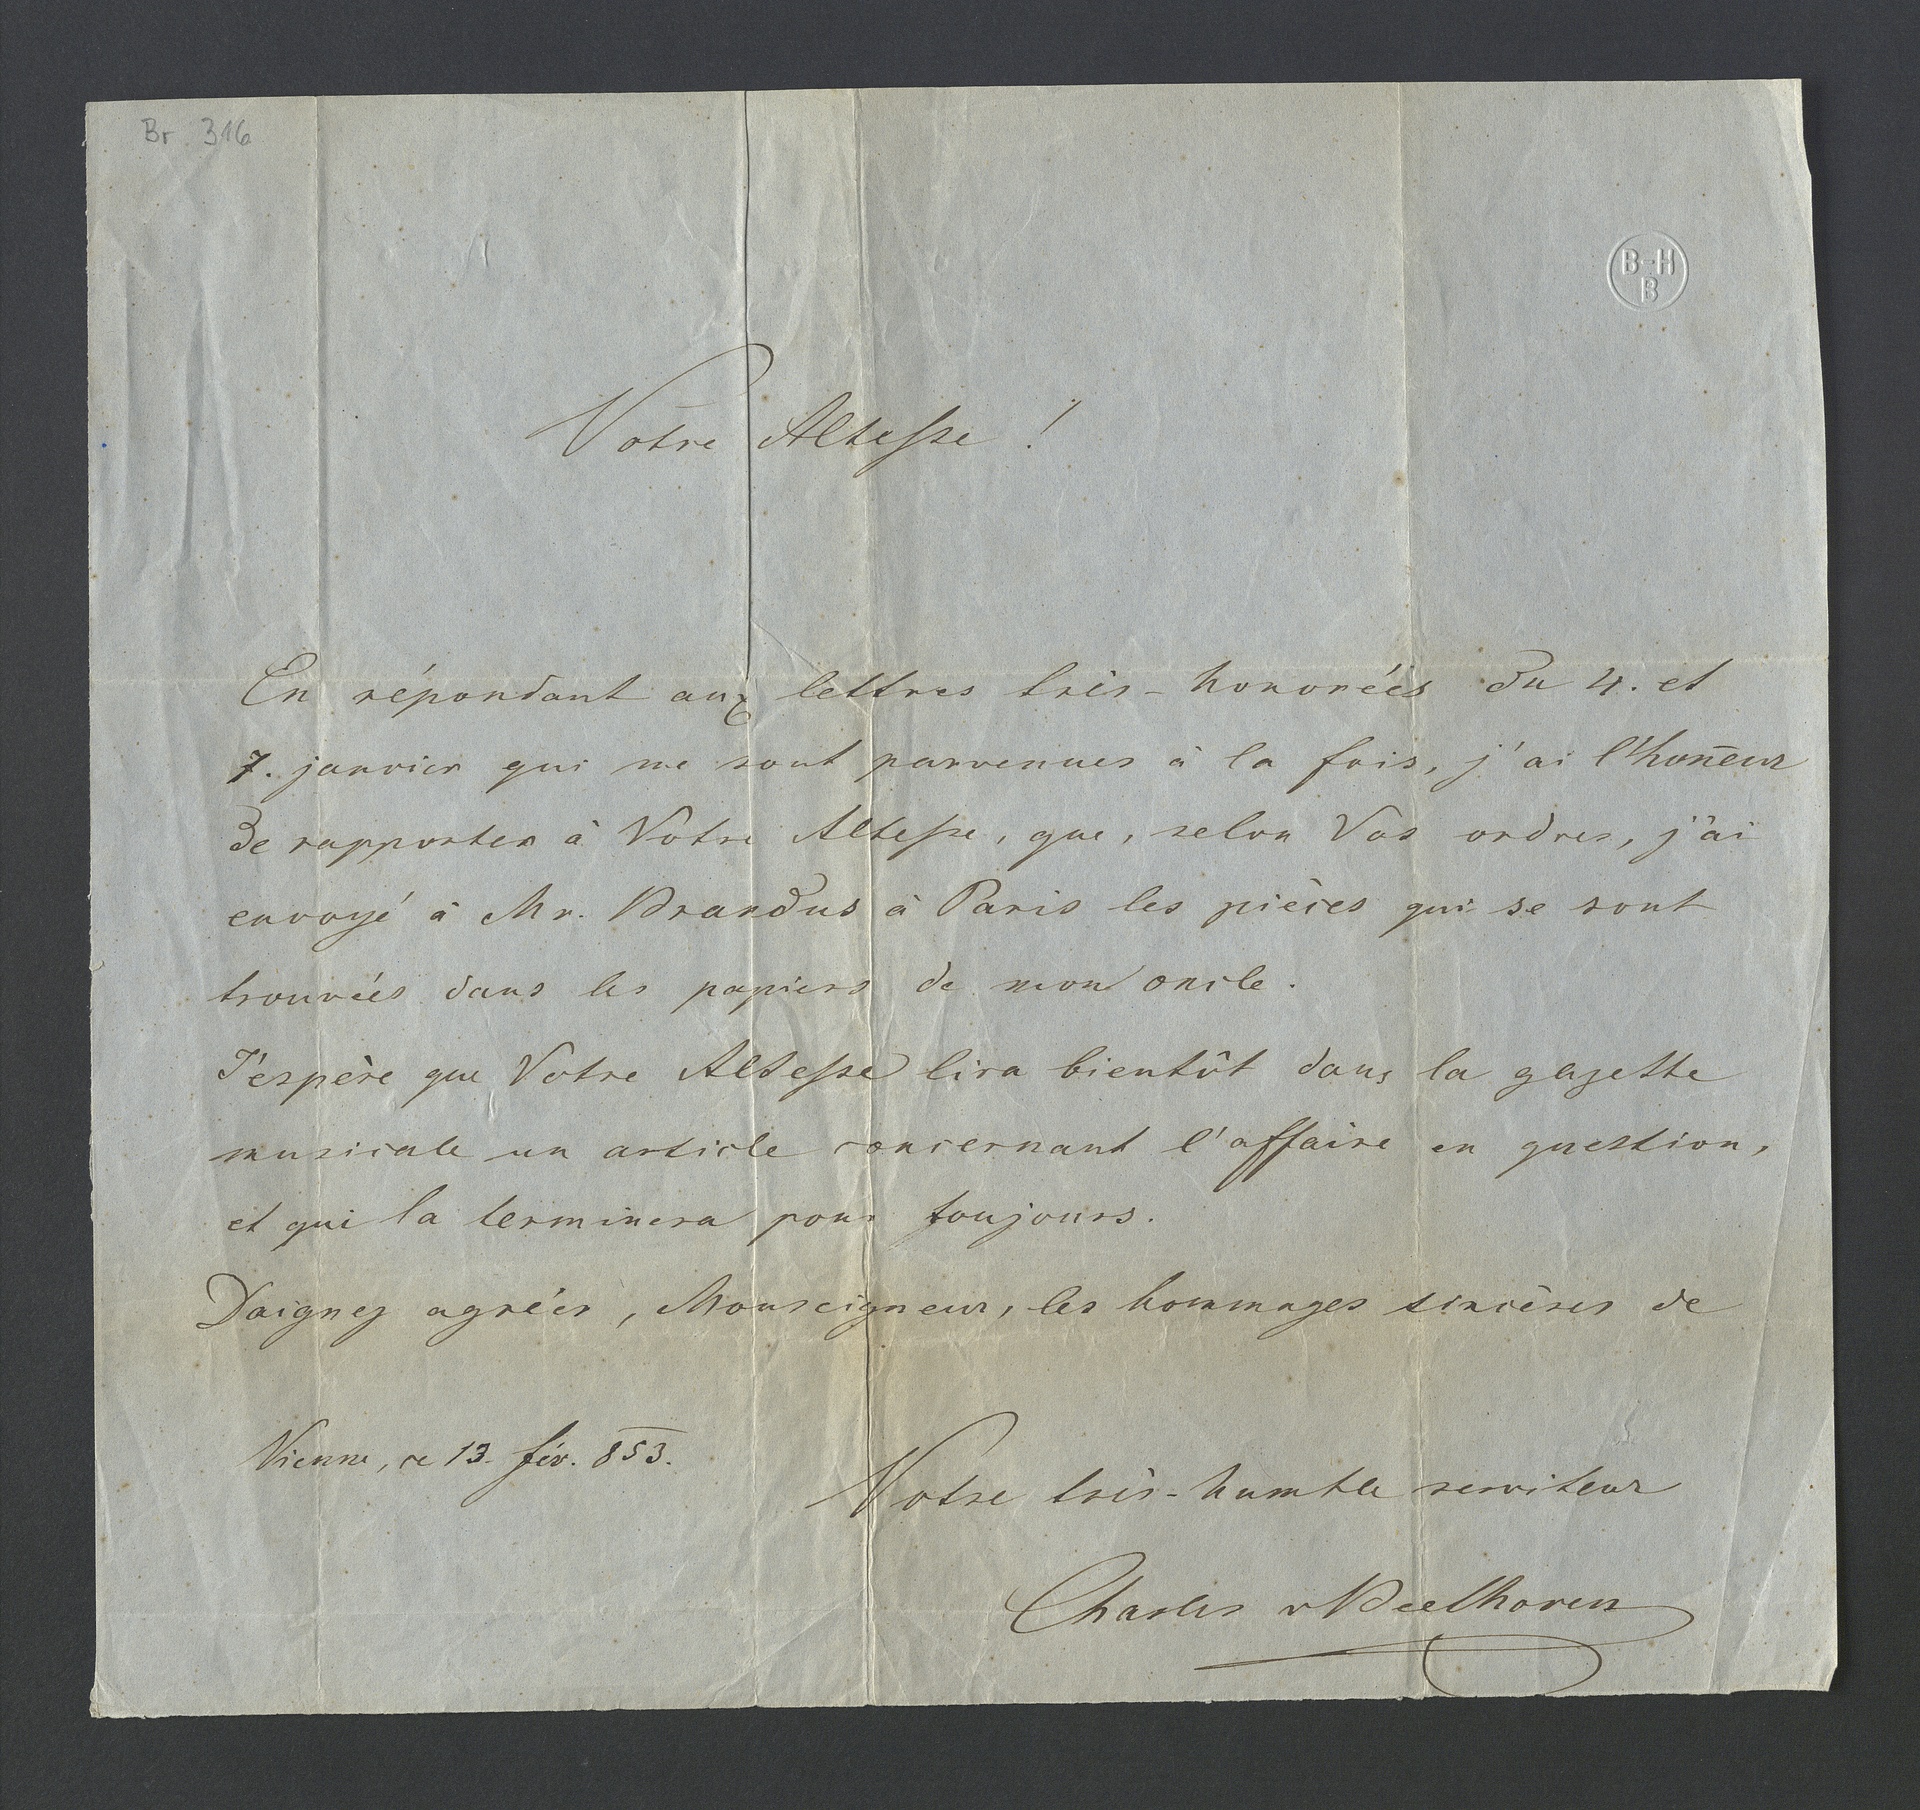 Br. 316
B-H
B
Votre Altesse !
En répondant aux lettres très-honorées du 4. et
7. janvier qui me sont parvenues à la fois, j'ai l'hon̄eur
de rapporter à Votre Altesse, que, selon Vos ordres, j'ai
envoyé à Mr. Brandus à Paris les pièces qui se sont
trouvées dans les papiers de mon oncle.
J'espère que Votre Altesse lira bientôt dans la gazette
musicale un article concernant l'affaire en question,
et qui la terminera pour toujours.
Daignez agréer, Monseigneur, les hommages sincères de
Vienne, ce 13. fév. 853.
Votre très-humble serviteur
Charles v Beethoven